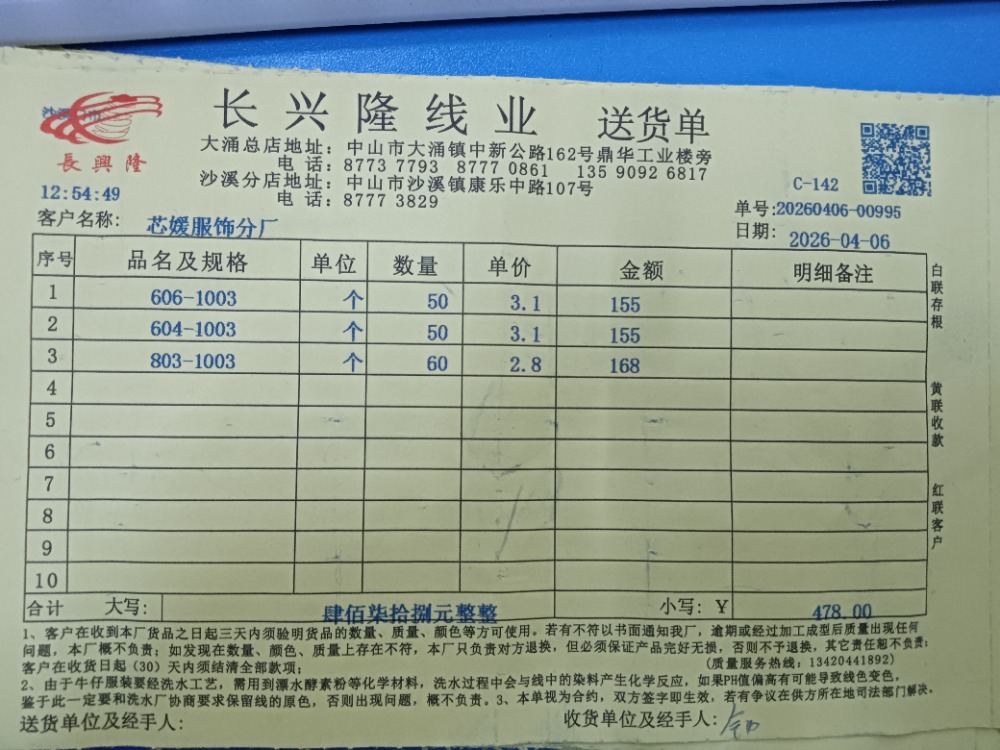 长兴隆线业 送货单
長興隆
大涌总店地址：中山市大涌镇中新公路162号鼎华工业楼旁
电 话：8773 7793 8777 0861 135 9092 6817
沙溪分店地址：中山市沙溪镇康乐中路107号
电 话：8777 3829
12:54:49
C-142
客户名称：芯媛服饰分厂
单号:20260406-00995
日期：2026-04-06
序号 品名及规格 单位 数量 单价 金额 明细备注
1 606-1003 个 50 3.1 155
2 604-1003 个 50 3.1 155
3 803-1003 个 60 2.8 168
4
5
6
7
8
9
10
合计 大写：肆佰柒拾捌元整整 小写：¥ 478.00
白联存根
黄联收款
红联客户
1、客户在收到本厂货品之日起三天内须验明货品的数量、质量、颜色等方可使用。若有不符以书面通知我厂，逾期或经过加工成型后质量出现任何
问题，本厂概不负责；如发现在数量、颜色、质量上存在不符，本厂只负责对方退换，但必须保证产品完好无损，否则不予退换，其它责任恕不负责；
客户在收货日起（30）天内须结清全部款项； (质量服务热线：13420441892)
2、由于牛仔服装要经洗水工艺，需用到漂水酵素粉等化学材料，洗水过程中会与线中的染料产生化学反应，如果PH值偏高有可能导致线色变色，
鉴于此一定要和洗水厂协商要求保留线的原色，否则出现问题，概不负责。3、本单视为合约，双方签字即生效，若有争议在供方所在地司法部门解决。
送货单位及经手人： 收货单位及经手人：